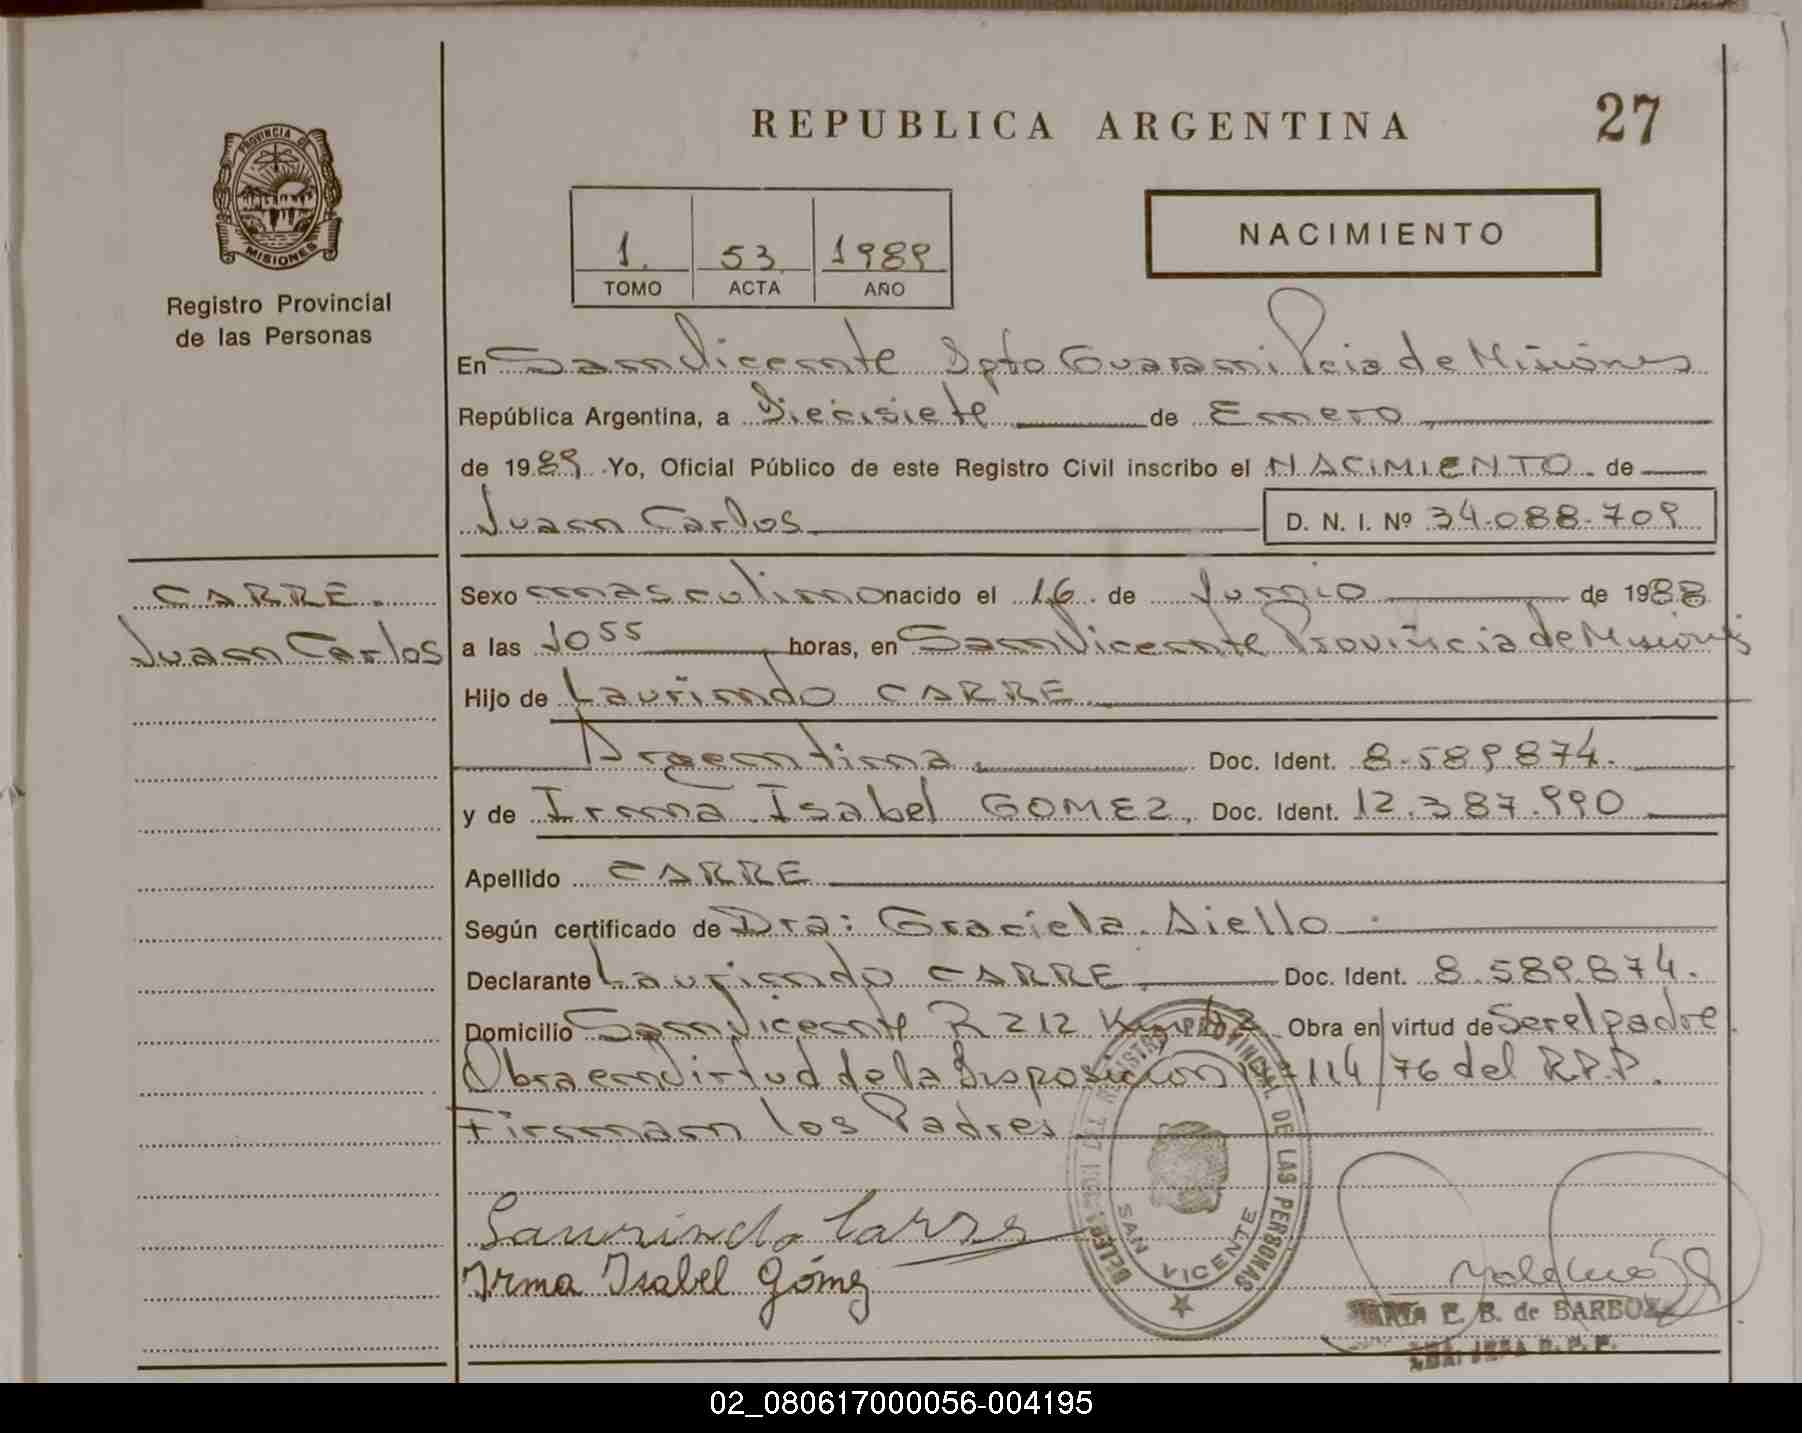 REPUBLICA ARGENTINA
27
PROVINCIA DE
MISIONES
Registro Provincial
de las Personas
1. 53 1989
TOMO ACTA AÑO
NACIMIENTO
En San Vicente Dpto Guarani Pcia de Misiones
República Argentina, a Diecisiete de Enero
de 1989 Yo, Oficial Público de este Registro Civil inscribo el NACIMIENTO de
Juan Carlos D. N. I. Nº 34.088.709
CARRE.
Juan Carlos
Sexo masculino nacido el 16 de Junio de 1988
a las 10 55 horas, en San Vicente Provincia de Misiones
Hijo de Laurindo CARRE
Argentina. Doc. Ident. 8.589.874.
y de Irma Isabel GOMEZ, Doc. Ident. 12.387.990
Apellido CARRE
Según certificado de Dra: Graciela Aiello
Declarante Laurindo CARRE Doc. Ident. 8.589.874.
Domicilio San Vicente R 212 Obra en virtud de Ser el padre.
Obra en virtud de la Disposicion Nº 114/76 del R.P.P.
Firman los Padres
Laurindo Carre
Irma Isabel Gómez
REGISTRO PROVINCIAL DE LAS PERSONAS
SAN VICENTE
E. B. de BARBOZA
JEFA R. P. P.
02_080617000056-004195